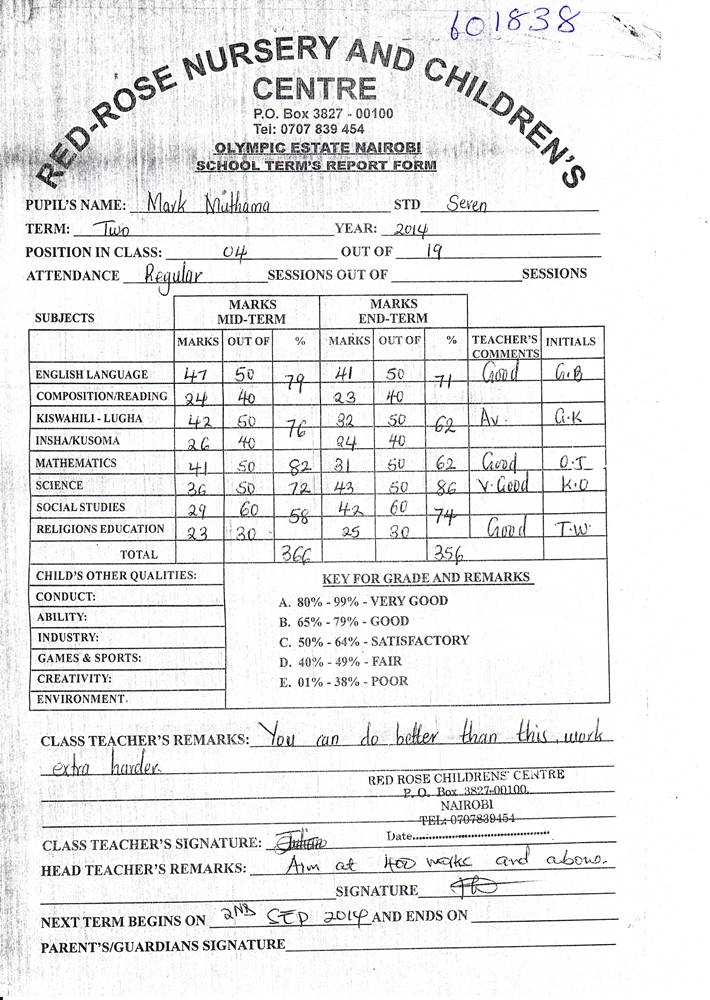 601838
RED-ROSE NURSERY AND CHILDREN'S
CENTRE
P.O. Box 3827 - 00100
Tel: 0707 839 454
OLYMPIC ESTATE NAIROBI
SCHOOL TERM'S REPORT FORM
PUPIL'S NAME: Mark Muthama STD Seven
TERM: Two YEAR: 2014
POSITION IN CLASS: 04 OUT OF 19
ATTENDANCE Regular SESSIONS OUT OF SESSIONS
SUBJECTS MARKS MID-TERM MARKS END-TERM
MARKS OUT OF % MARKS OUT OF % TEACHER'S COMMENTS INITIALS
ENGLISH LANGUAGE 47 50 79 41 50 71 Good G.B
COMPOSITION/READING 24 40 23 40
KISWAHILI - LUGHA 42 50 76 32 50 62 Av. G.K
INSHA/KUSOMA 26 40 24 40
MATHEMATICS 41 50 82 31 50 62 Good O.J
SCIENCE 36 50 72 43 50 86 V.Good K.O
SOCIAL STUDIES 29 60 58 42 60 74
RELIGIONS EDUCATION 23 30 25 30 Good T.W.
TOTAL 366 356
CHILD'S OTHER QUALITIES: KEY FOR GRADE AND REMARKS
CONDUCT: A. 80% - 99% - VERY GOOD
ABILITY: B. 65% - 79% - GOOD
INDUSTRY: C. 50% - 64% - SATISFACTORY
GAMES & SPORTS: D. 40% - 49% - FAIR
CREATIVITY: E. 01% - 38% - POOR
ENVIRONMENT.
CLASS TEACHER'S REMARKS: You can do better than this, work
extra harder.
RED ROSE CHILDRENS' CENTRE
P. O. Box 3827-00100,
NAIROBI
TEL: 0707839454
Date
CLASS TEACHER'S SIGNATURE:
HEAD TEACHER'S REMARKS: Aim at 400 marks and above.
SIGNATURE
NEXT TERM BEGINS ON 2ND SEP 2014 AND ENDS ON
PARENT'S/GUARDIANS SIGNATURE